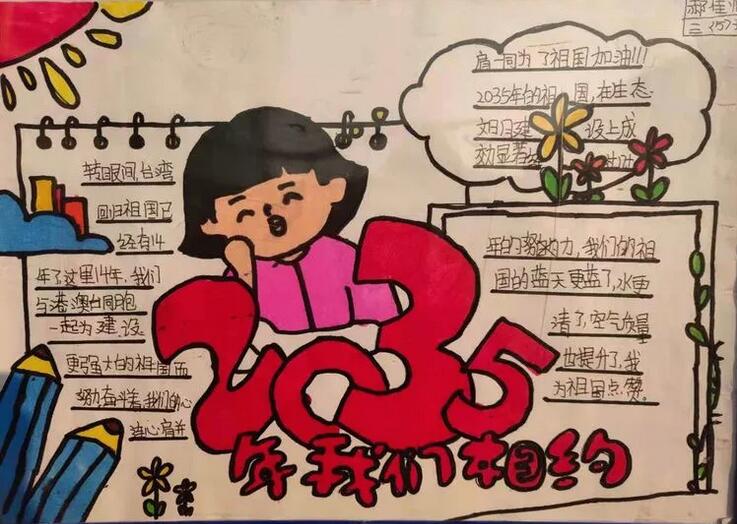 三(5)
转眼间,台湾
回归祖国已
经有14
年了这里14年,我们
与港澳台同胞
一起为建设
更强大的祖国而
努力奋斗着,我们的心
连心肩并
肩一同为了祖国加油!!!
2035年的祖国,在生态
文明建设上成
效显著
年的努力,我们的祖
国的蓝天更蓝了,水更
清了,空气质量
也提升了,我
为祖国点赞。
2035
年我们相约